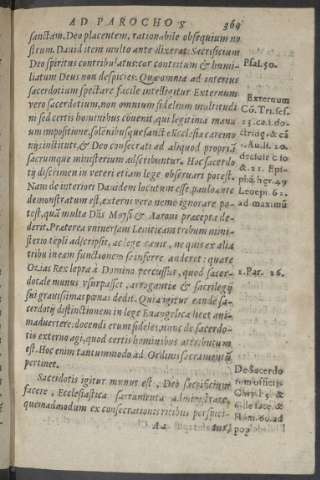 AD PAROCHOS 369
sanctam, Deo placentem, rationabile obsequium no
strum. Dauid item multo ante dixerat: Sacrificium
Deo spiritus contribulatus: cor contritum & humi-
liatum Deus non despicies. Quæ omnia ad interius
sacerdotium spectare facile intelligitur. Externum
vero sacerdotium, non omnium fidelium multitudi
ni sed certis hominibus conuenit, qui legitima manu
um impositione, solenibusque sanctæ Ecclesiæ cæremo
niis instituti, & Deo consecrati ad aliquod propriũ
sacrumque ministerium adscribuntur. Hoc sacerdo
tij discrimen in veteri etiam lege obseruari potest.
Nam de interiori Dauidem locutum esse, paulo ante
demonstratum est, externi vero nemo ignorare po-
test, quã multa Dñs Moysi & Aaroni præcepta de-
derit. Præterea vniuersam Leuiticam tribum mini-
sterio tẽpli adscripsit, ac lege cauit, ne quis ex alia
tribu in eam functionem se inferre auderet: quare
Ozias Rex lepra a Domino percussus, quod sacer-
dotale munus vsurpasset, arrogantiæ & sacrilegij
sui grauissimas pœnas dedit. Quia igitur eandẽ sa-
cerdotij distinctionem in lege Euangelica licet ani-
maduertere: docendi erunt fideles, nunc de sacerdo-
tio externo agi, quod certis hominibus attributum
est. Hoc enim tantummodo ad Ordinis sacramentũ
pertinet.
Sacerdotis igitur munus est, Deo sacrificium
facere, Ecclesiastica sacramenta administrare,
quemadmodum ex consecrationis ritibus perspici-
Aa
Psal. 50.
Externum
Cõ. Tri. ses.
23. ca. 1. do-
& 21. Epi-
ad maximũ
2. Par. 26.
De Sacerdo